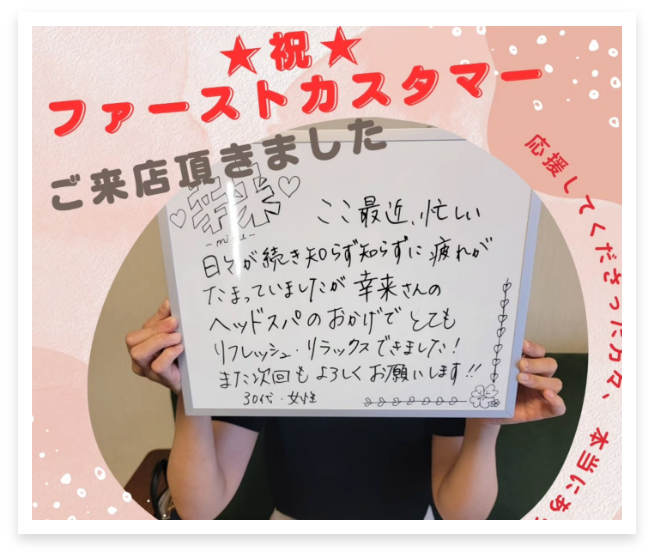 ★祝★
ファーストカスタマー
ご来店頂きました
応援してくださった方々、本当にあ
幸来
-miku-
ここ最近、忙しい
日々が続き知らず知らずに疲れが
たまっていましたが幸来さんの
ヘッドスパのおかげでとても
リフレッシュ・リラックスできました!
また次回もよろしくお願いします!!
30代・女性